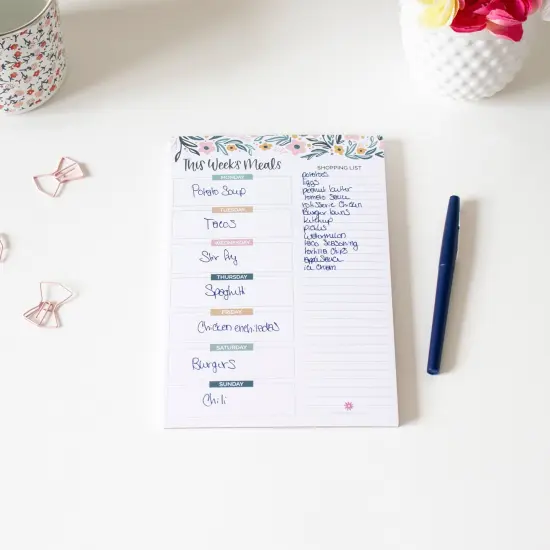 This Week's Meals
MONDAY
Potato Soup
TUESDAY
Tacos
WEDNESDAY
Stir fry
THURSDAY
Spaghetti
FRIDAY
Chicken enchiladas
SATURDAY
Burgers
SUNDAY
Chili
SHOPPING LIST
potatos
Eggs
peanut butter
tomato sauce
rotisserie chicken
Burger buns
ketchup
pickles
watermelon
taco seasoning
tortilla chips
applesauce
ice cream